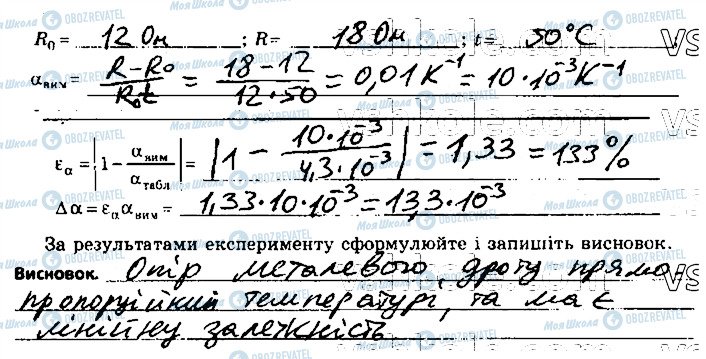 R₀ = 12 Ом ; R = 18 Ом ; t = 50°C
α вим = (R – R₀)/(R₀t) = (18 – 12)/(12 · 50) = 0,01 К⁻¹ = 10 · 10⁻³ К⁻¹
ε_α = |1 – α вим/α табл| = |1 – (10 · 10⁻³)/(4,3 · 10⁻³)| = 1,33 = 133%
Δα = ε_α α вим = 1,33 · 10 · 10⁻³ = 13,3 · 10⁻³
За результатами експерименту сформулюйте і запишіть висновок.
Висновок. Опір металевого дроту прямо
пропорційний температурі, та має
лінійну залежність